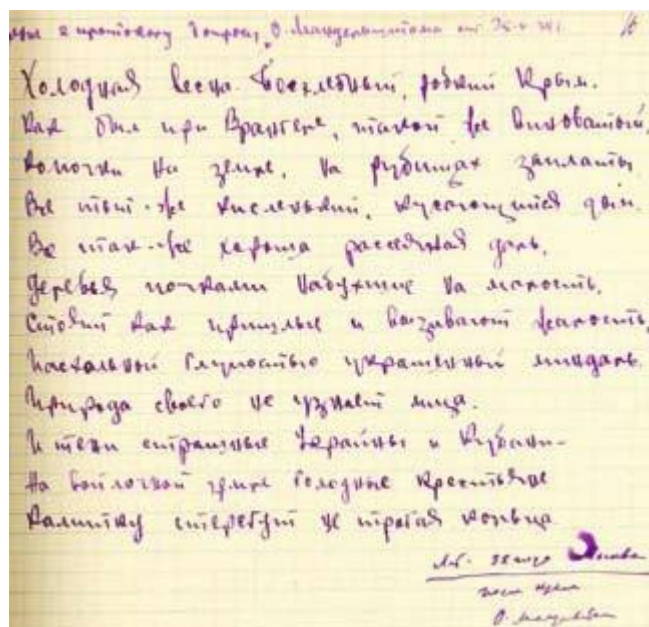 к протоколу допроса О. Мандельштама от 25.V.34 г. 16
Холодная весна. Бесхлебный, робкий Крым.
Как был при Врангеле, такой же виноватый,
Комочки на земле, на рубищах заплаты
Все тот-же кисленький, кусающийся дым.
Все так-же хороша рассеянная даль,
Деревья почками набухшие на малость,
Стоят как пришлые и вызывают жалость,
Пасхальной глупостью украшенный миндаль.
Природа своего не узнает лица.
И тени страшные Украйны и Кубани-
На войлочной земле голодные крестьяне
Калитку стерегут не трогая кольца
33 года Москва
после Крыма
О. Мандельштам